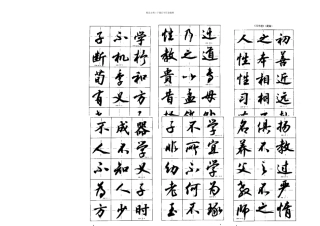 人之初
性本善
性相近
习相远
性乃迁
教之道
贵以专
昔孟母
子不学
断机杼
荀季和
有义方
名俱扬
养不教
父之过
教不严
师之惰
子不学
非所宜
幼不学
老何为
玉不琢
不成器
人不学
不知义
为人子
方少时